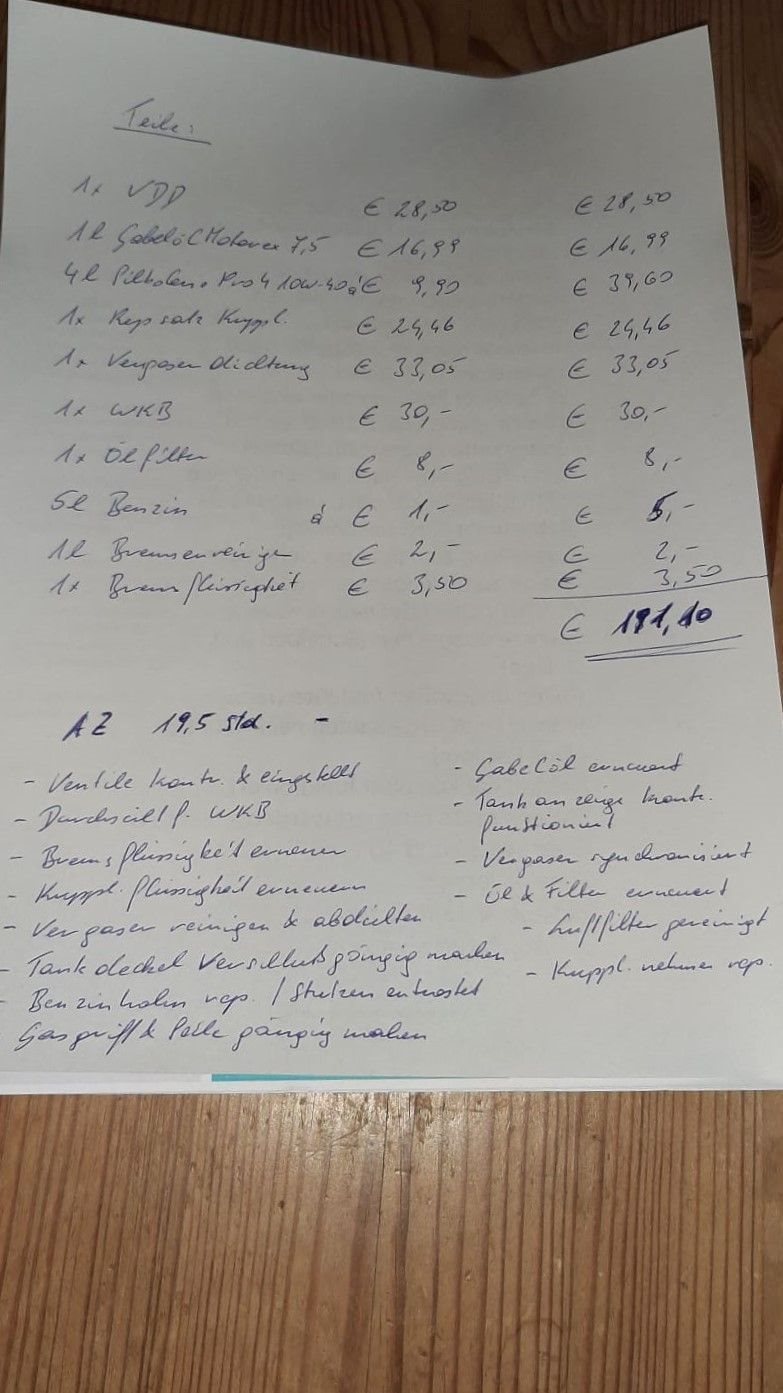 Teile:
1x VDD € 28,50 € 28,50
1l Gabelöl Motorex 7,5 € 16,99 € 16,99
4l Pro 4 10W-40 à € 9,90 € 39,60
1x Repsatz Kuppl. € 24,46 € 24,46
1x Vergaserdichtung € 33,05 € 33,05
1x WKB € 30,- € 30,-
1x Ölfilter € 8,- € 8,-
5l Benzin à € 1,- € 5,-
1l Bremsenreiniger € 2,- € 2,-
1x Bremsflüssigkeit € 3,50 € 3,50
€ 191,10
AZ 19,5 Std. -
- Ventile kontr. & eingestellt
- WKB
- Bremsflüssigkeit erneuern
- Kuppl. flüssigkeit erneuern
- Vergaser reinigen & abdichten
- Tankdeckel Verschluß gängig machen
- Benzinhahn rep. / Stutzen entrostet
Gasgriff & Seile gängig machen
- Gabelöl erneuert
- Tankanzeige kontr.
funktioniert
- Vergaser synchronisiert
- Öl & Filter erneuert
- Luftfilter gereinigt
- Kuppl. nehmer rep.